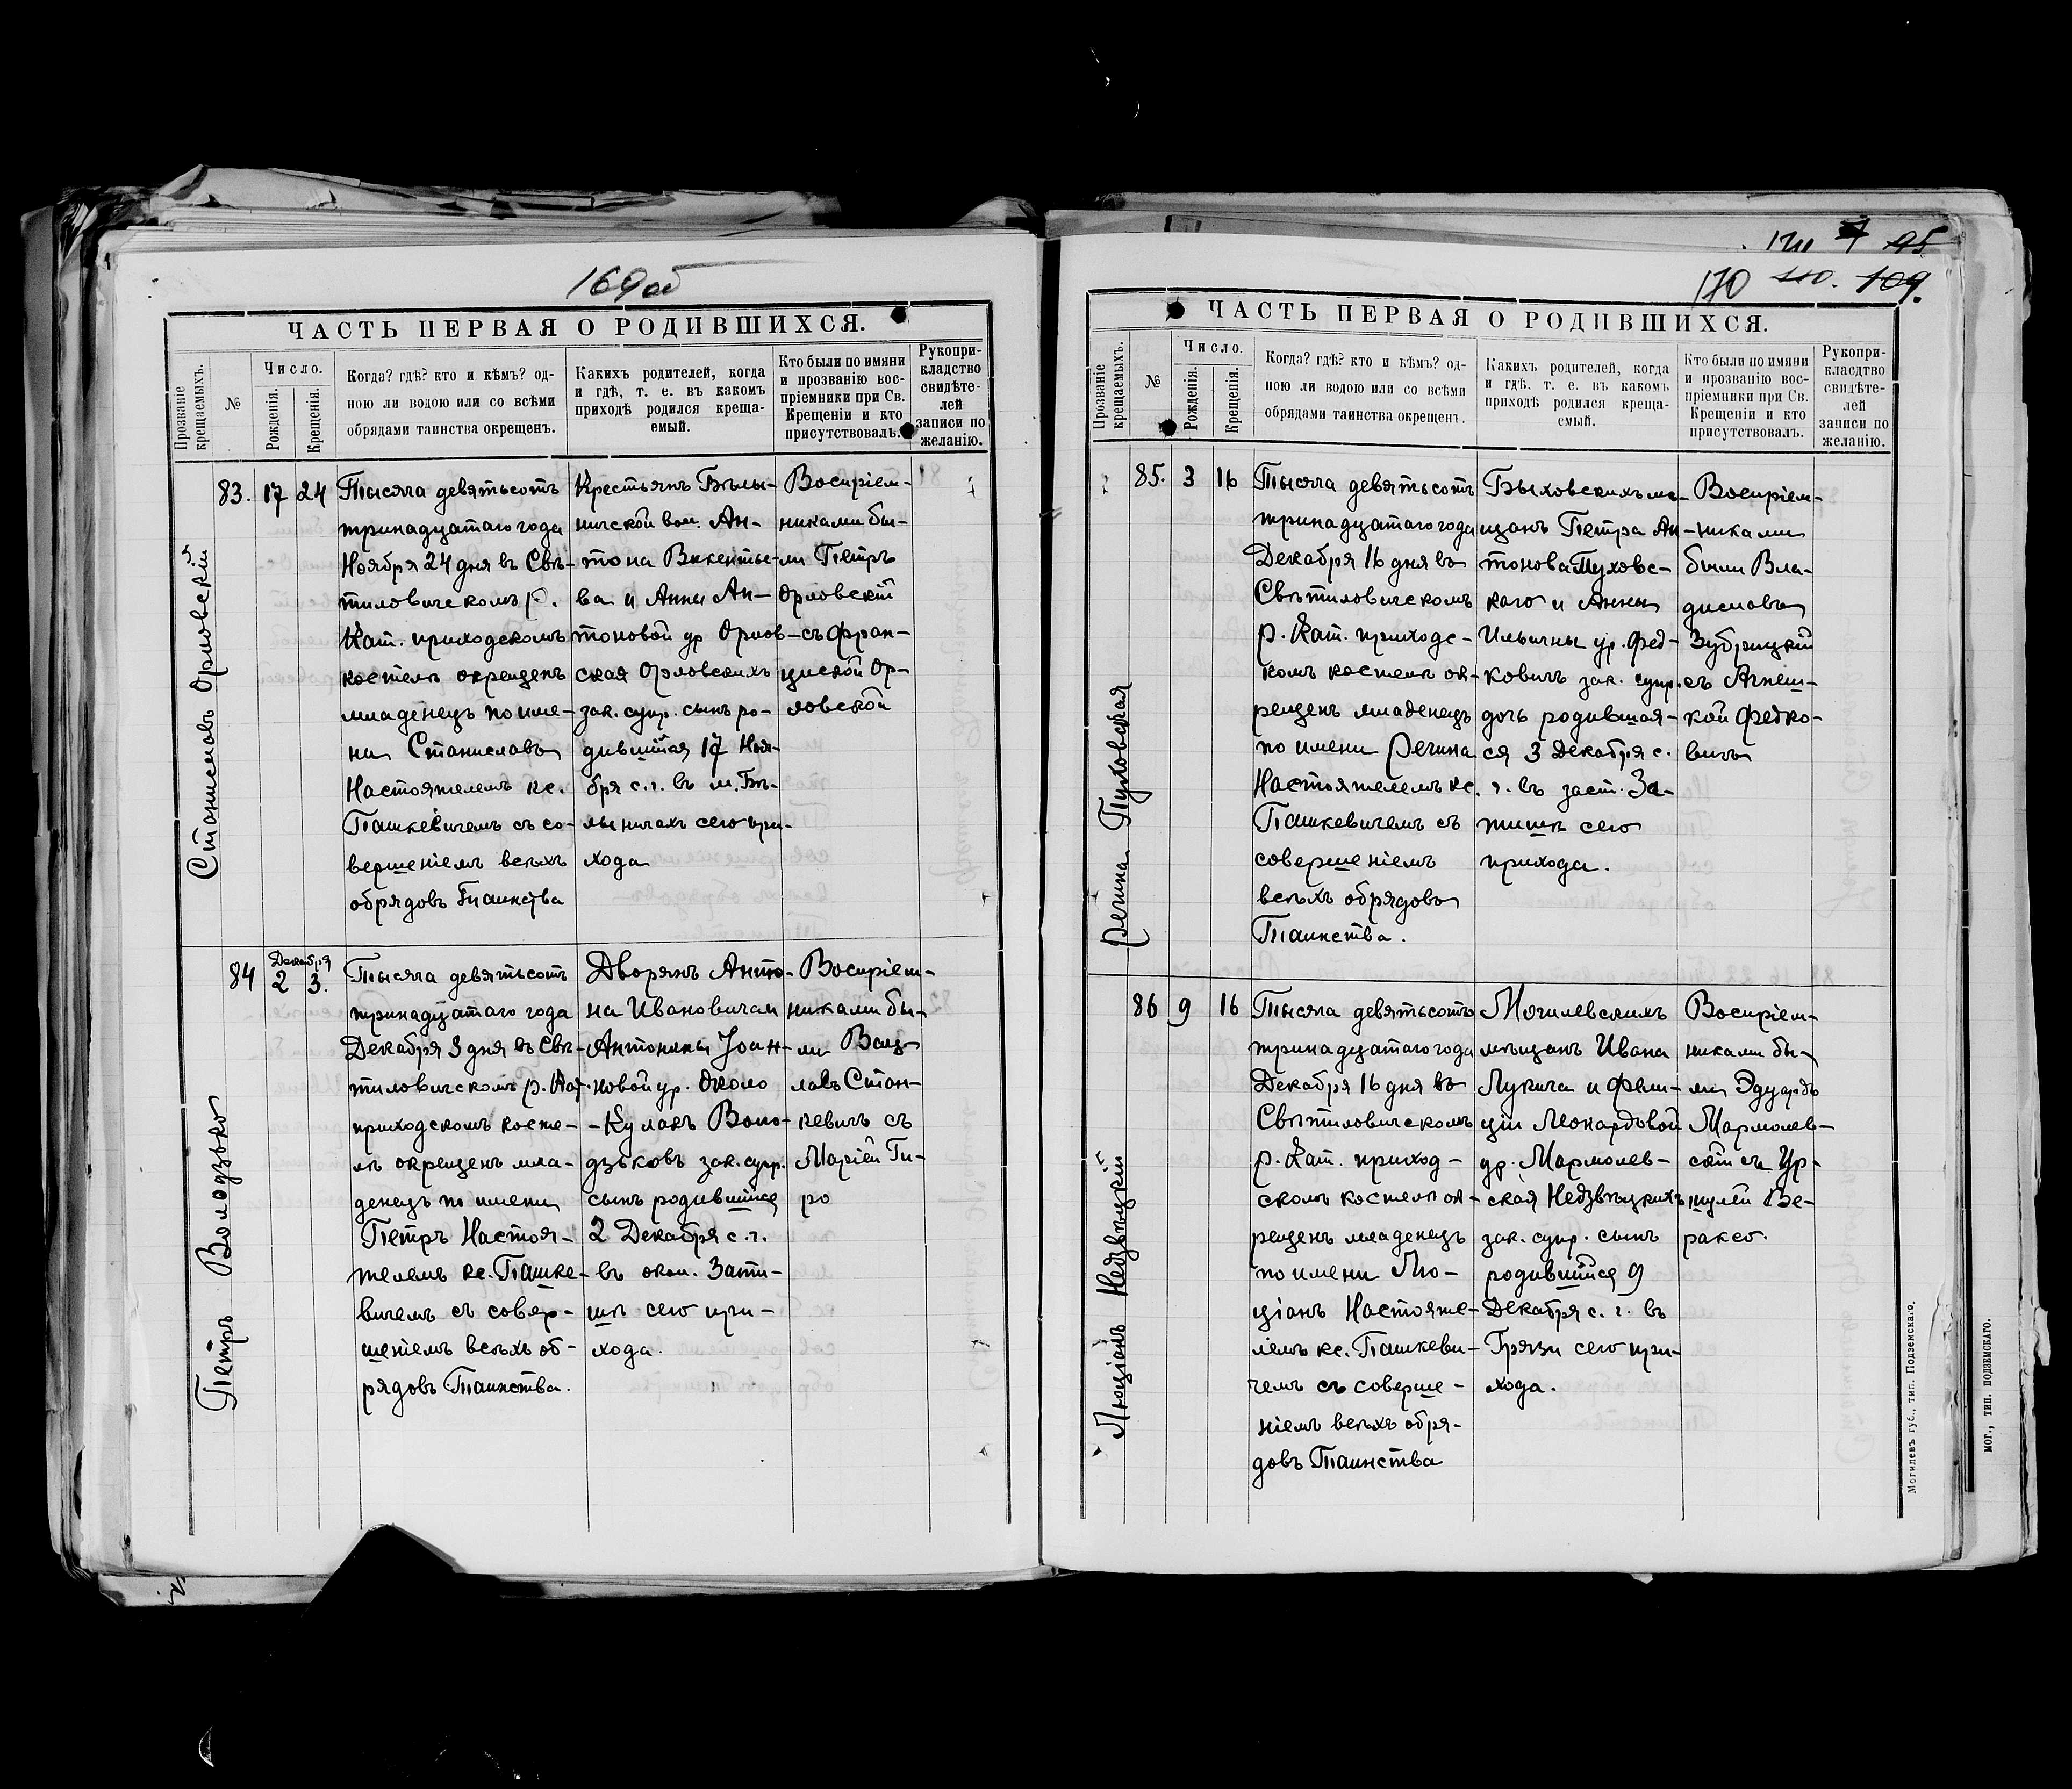 169об
ЧАСТЬ ПЕРВАЯ О РОДИВШИХСЯ.
Прозваніе крещаемыхъ.
№
Число.
Рожденія.
Крещенія.
Когда? гдѣ? кто и кѣмъ? од-
ною ли водою или со всѣми
обрядами таинства окрещенъ.
Какихъ родителей, когда
и гдѣ, т. е. въ какомъ
приходѣ родился креща-
емый.
Кто были по имяни
и прозванію вос-
пріемники при Св.
Крещеніи и кто
присутствовалъ.
Рукопри-
кладство
свидѣте-
лей
записи по
желанію.
Станиславъ Орловскій
83. 17 24
Тысяча девятьсотъ
тринадцатаго года
Ноября 24 дня въ Свѣ-
тиловическомъ р.
Кат. приходскомъ
костелѣ окрещенъ
младенецъ по име-
ни Станиславъ
Настоятелемъ кс.
Пашкевичемъ съ со-
вершеніемъ всѣхъ
обрядовъ Таинства
Крестьянъ Бѣлы-
ничской вол. Ан-
тона Викентье-
ва и Анны Ан-
тоновой ур Орлов-
ская Орловскихъ
зак. супр. сынъ ро-
дившійся 17 Ноя-
бря с.г. въ м. Бѣ-
лыничахъ сего при-
хода
Воспріем-
никами бы-
ли Петръ
Орловскій
съ Фран-
циской Ор-
ловской
Петръ Володзько
84 Декабря 2 3.
Тысяча девятьсотъ
тринадцатаго года
Декабря 3 дня въ Свѣ-
тиловическомъ р. Кат
приходскомъ косте-
лѣ окрещенъ мла-
денецъ по имени
Петръ Настоя-
телемъ кс. Пашке-
вичемъ съ совер-
шеніемъ всѣхъ об-
рядовъ Таинства.
Дворянъ Анто-
на Ивановича и
Антонины Іоан-
новой ур. Около
-Кулакъ Воло-
дзьковъ зак. супр.
сынъ родившійся
2 Декабря с.г.
въ окол. Зати-
шѣ сего при-
хода.
Воспріем-
никами бы-
ли Вац-
лавъ Стан-
кевичъ съ
Маріей Ги-
ро
170 110. 109.
ЧАСТЬ ПЕРВАЯ О РОДИВШИХСЯ.
Прозваніе крещаемыхъ.
№
Число.
Рожденія.
Крещенія.
Когда? гдѣ? кто и кѣмъ? од-
ною ли водою или со всѣми
обрядами таинства окрещенъ.
Какихъ родителей, когда
и гдѣ, т. е. въ какомъ
приходѣ родился креща-
емый.
Кто были по имяни
и прозванію вос-
пріемники при Св.
Крещеніи и кто
присутствовалъ.
Рукопри-
кладство
свидѣте-
лей
записи по
желанію.
Регина Пуховская
85. 3 16
Тысяча девятьсотъ
тринадцатаго года
Декабря 16 дня въ
Свѣтиловическомъ
р. Кат. приходс-
комъ костелѣ ок-
рещенъ младенецъ
по имени Регина
Настоятелемъ кс.
Пашкевичемъ съ
совершеніемъ
всѣхъ обрядовъ
Таинства.
Быховскихъ мѣ-
щанъ Петра Ан
тонова Пуховс-
каго и Анны
Ильичны ур. Фед-
ковичъ зак. супр.
дочь родившая-
ся 3 Декабря с.
г. въ заст. За-
тишѣ сего
прихода.
Воспріем-
-никами
были Вла-
диславъ
Зубрицкій
съ Агнеш-
кой Федко-
вичъ
Люціанъ Недзвѣцкій
86 9 16
Тысяча девятьсотъ
тринадцатаго года
Декабря 16 дня въ
Свѣтиловическомъ
р. Кат. приход-
скомъ костелѣ ок-
рещенъ младенецъ
по имени Лю-
ціанъ Настояте-
лемъ кс. Пашкеви-
чемъ съ соверше-
ніемъ всѣхъ обря-
довъ Таинства
Могилевскихъ
мѣщанъ Ивана
Лукича и Фели-
ціи Леонардовой
ур. Мармолев-
ская Недзвѣцкихъ
зак. супр. сынъ
родившійся 9
Декабря с. г. въ
Грязи сего при-
хода.
Воспріем-
никами бы-
ли Эдуардъ
Мармолев-
скій съ Ур-
шулей Ве-
раксо.
Могилевъ губ., тип. Подземскаго.
МОГ., ТИП. ПОДЗЕМСКАГО.